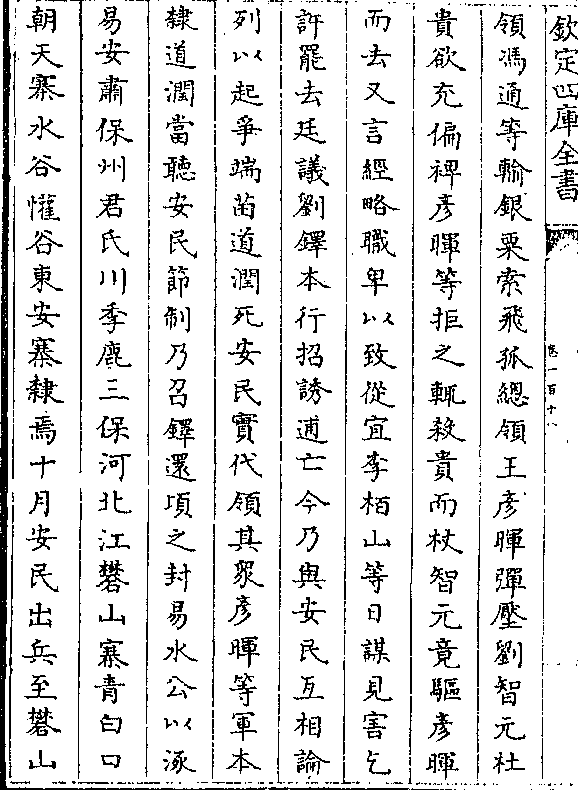 欽定四庫全書
卷一百十八
領馮通等輸銀粟索飛狐總領王彦暉彈壓劉智元杜
貴欲充偏裨彦暉等拒之輒殺貴而杖智元竟驅彦暉
而去又言經略職卑以致從宜李栢山等日謀見害乞
許罷去廷議劉鐸本行招誘逋亡今乃與安民互相論
列以起爭端苗道潤死安民實代領其衆彦暉等軍本
隸道潤當聽安民節制乃召鐸還頃之封易水公以涿
易安肅保州君氏川季鹿三保河北江礬山寨青白口
朝天寨水谷懽谷東安寨隸焉十月安民出兵至礬山